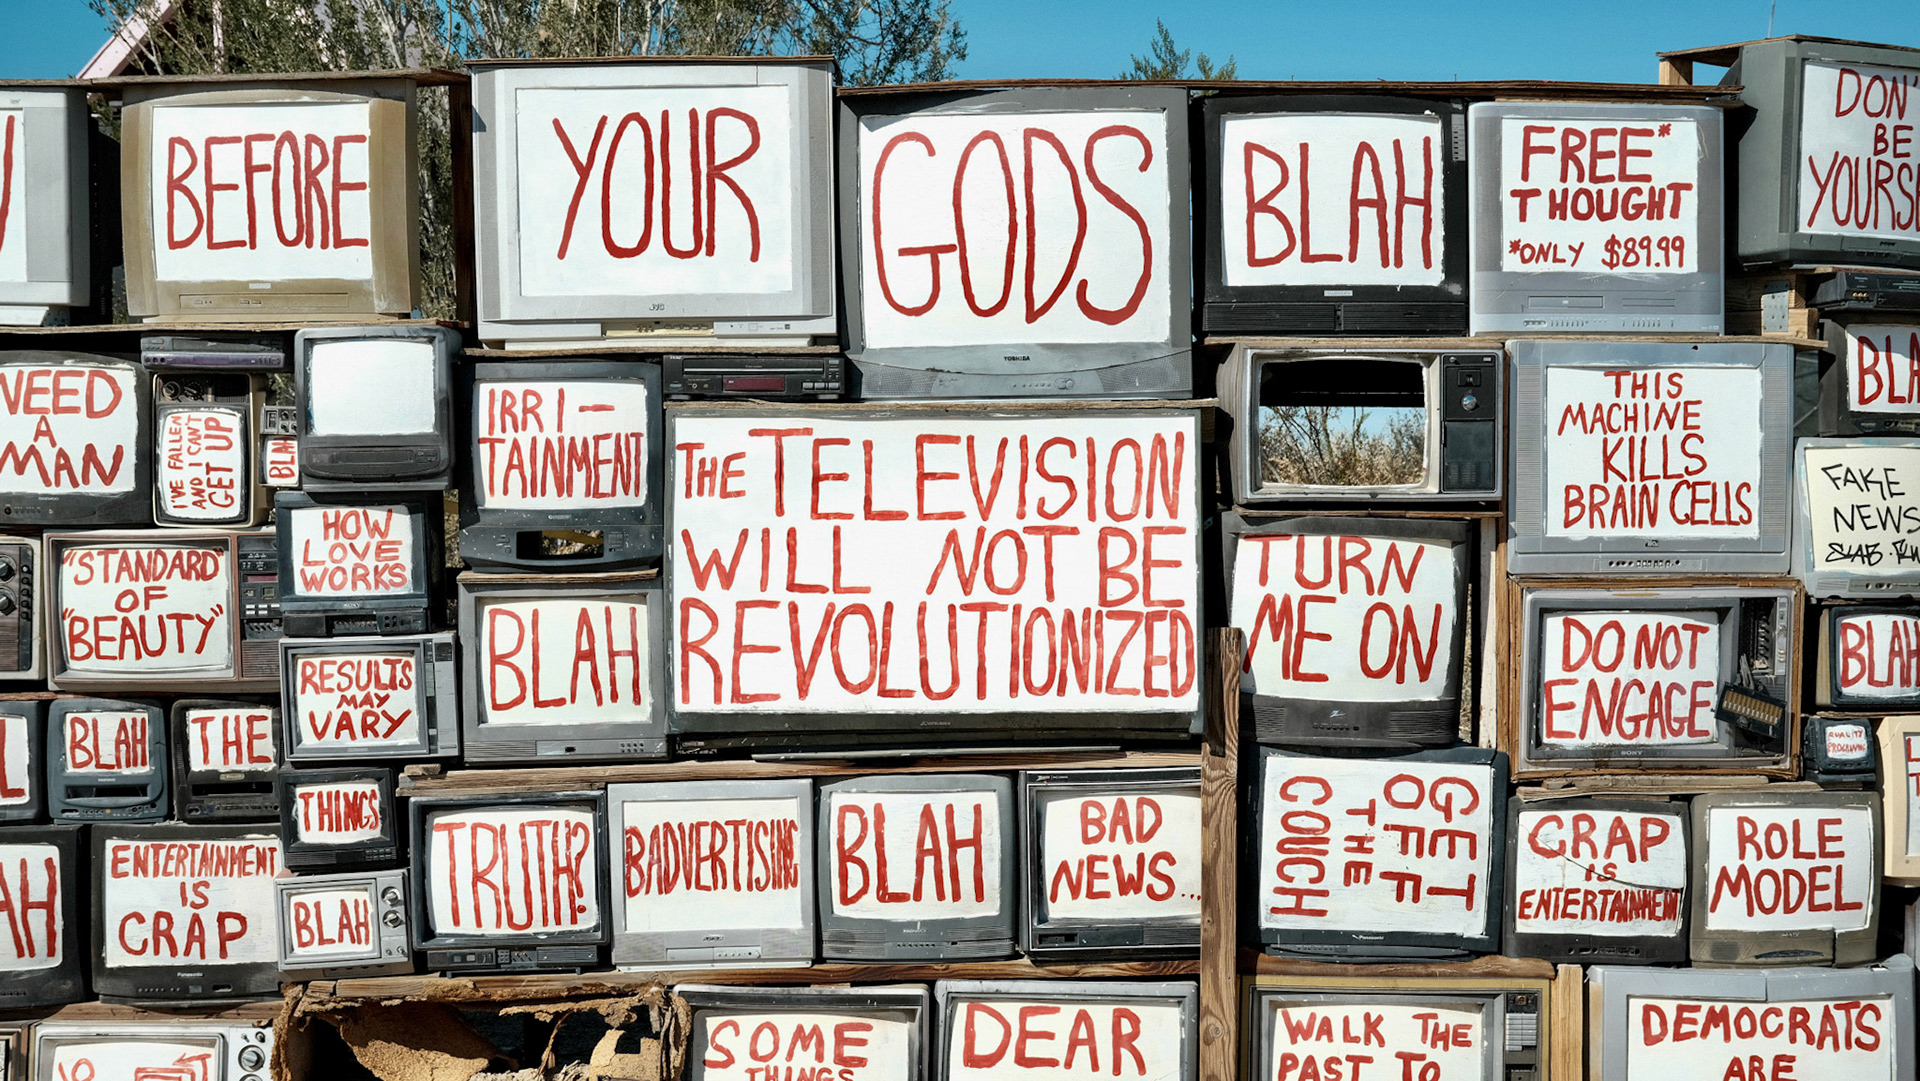 BEFORE
YOUR
GODS
BLAH
FREE*
THOUGHT
*ONLY $89.99
DON'
BE
YOURS
NEED
A
MAN
I'VE FALLEN
AND I CAN'T
GET UP
BLAH
IRRI-
TAINMENT
JVC
TOSHIBA
THE TELEVISION
WILL NOT BE
REVOLUTIONIZED
THIS
MACHINE
KILLS
BRAIN CELLS
BLA
FAKE
NEWS
"STANDARD"
OF
"BEAUTY"
HOW
LOVE
WORKS
SONY
RESULTS
MAY
VARY
BLAH
TURN
ME ON
DO NOT
ENGAGE
SONY
BLAH
BLAH
THE
THINGS
QUALITY
PROGRAMING
AH
ENTERTAINMENT
IS
CRAP
Panasonic
BLAH
TRUTH?
BADVERTISING
BLAH
BAD
NEWS...
GET
OFF
THE
COUCH
Panasonic
CRAP
IS
ENTERTAINMENT
ROLE
MODEL
SOME
THINGS
DEAR
WALK THE
PAST TO
DEMOCRATS
ARE